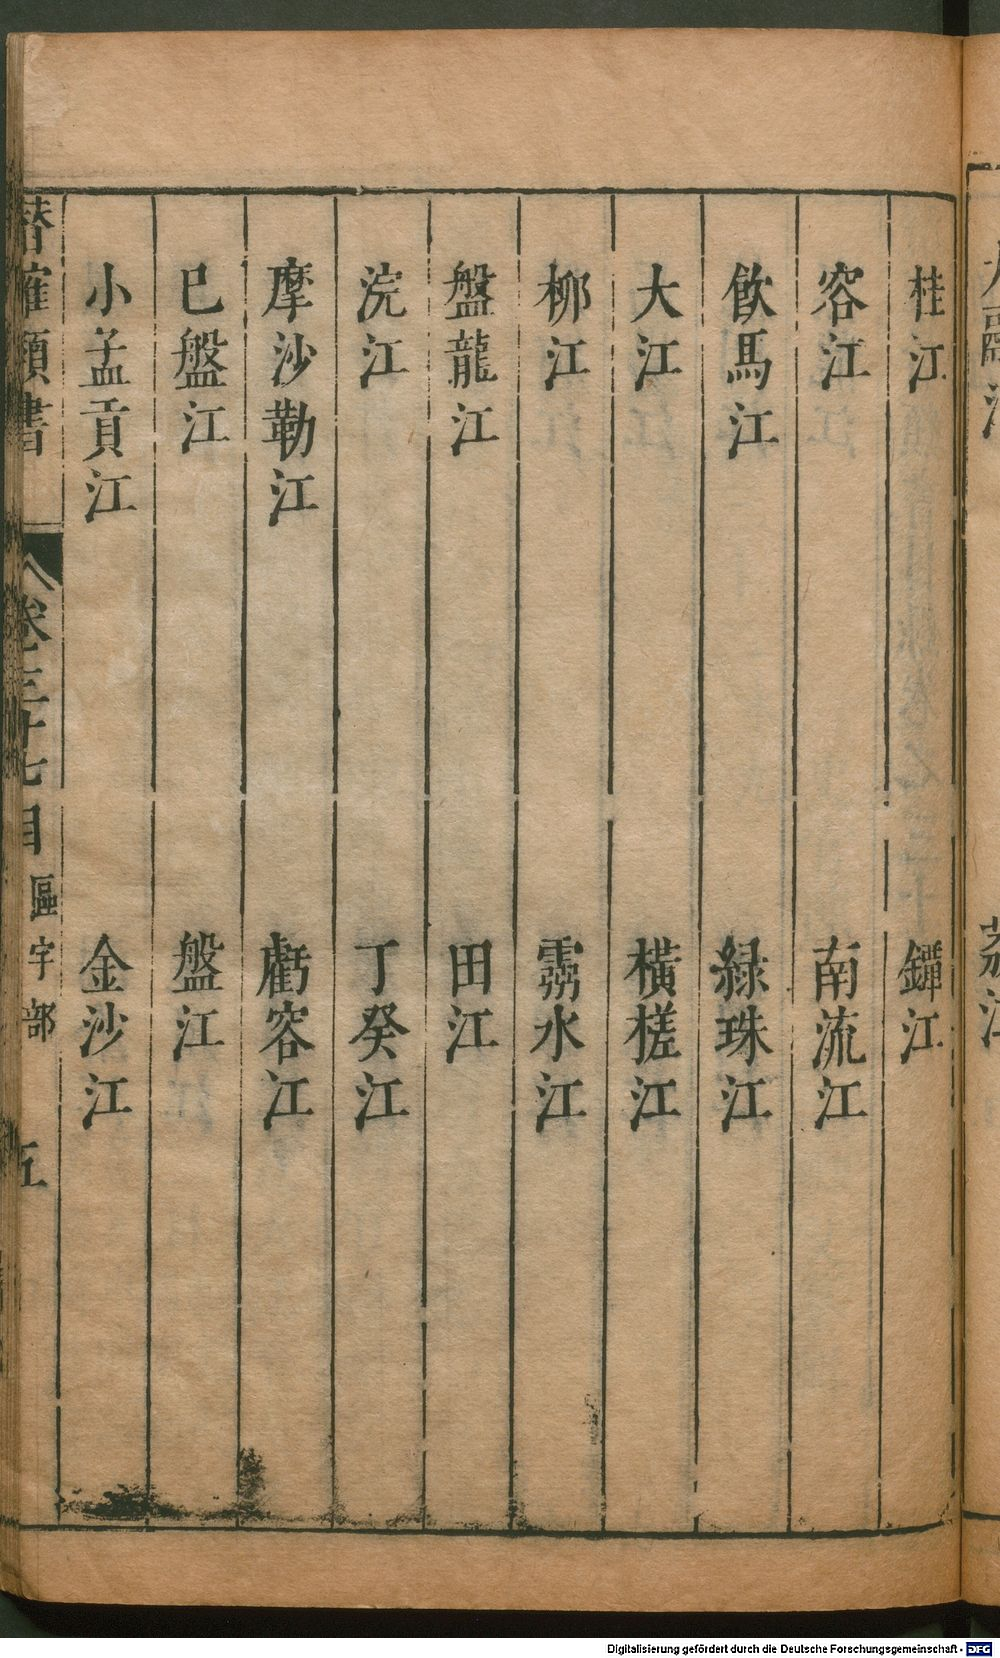 桂江
鐔江
容江
南流江
飲馬江
綠珠江
大江
橫槎江
柳江
霛水江
盤龍江
田江
浣江
丁癸江
摩沙勒江
虧容江
巳盤江
盤江
小孟貢江
金沙江
潛確類書
卷三十七目
區宇部
五
Digitalisierung gefördert durch die Deutsche Forschungsgemeinschaft - DFG